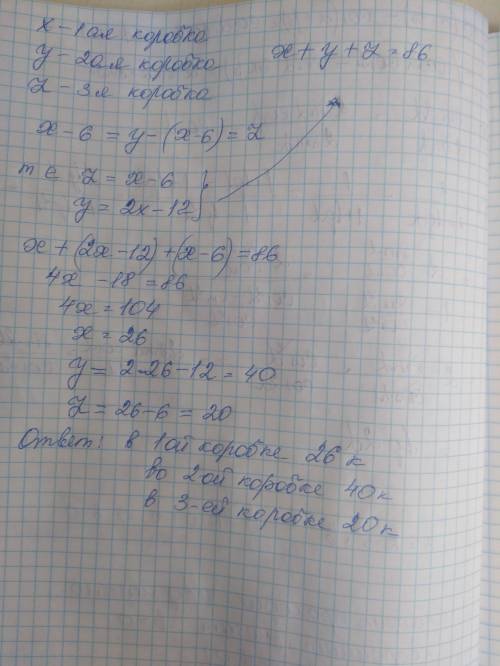 x - 1ая коробка
y - 2ая коробка
z - 3я коробка
x + y + z = 86
x - 6 = y - (x-6) = z
т е z = x - 6
y = 2x - 12
x + (2x - 12) + (x - 6) = 86
4x - 18 = 86
4x = 104
x = 26
y = 2·26 - 12 = 40
z = 26 - 6 = 20
Ответ: в 1ой коробке 26 к
во 2ой коробке 40 к
в 3-ей коробке 20 к